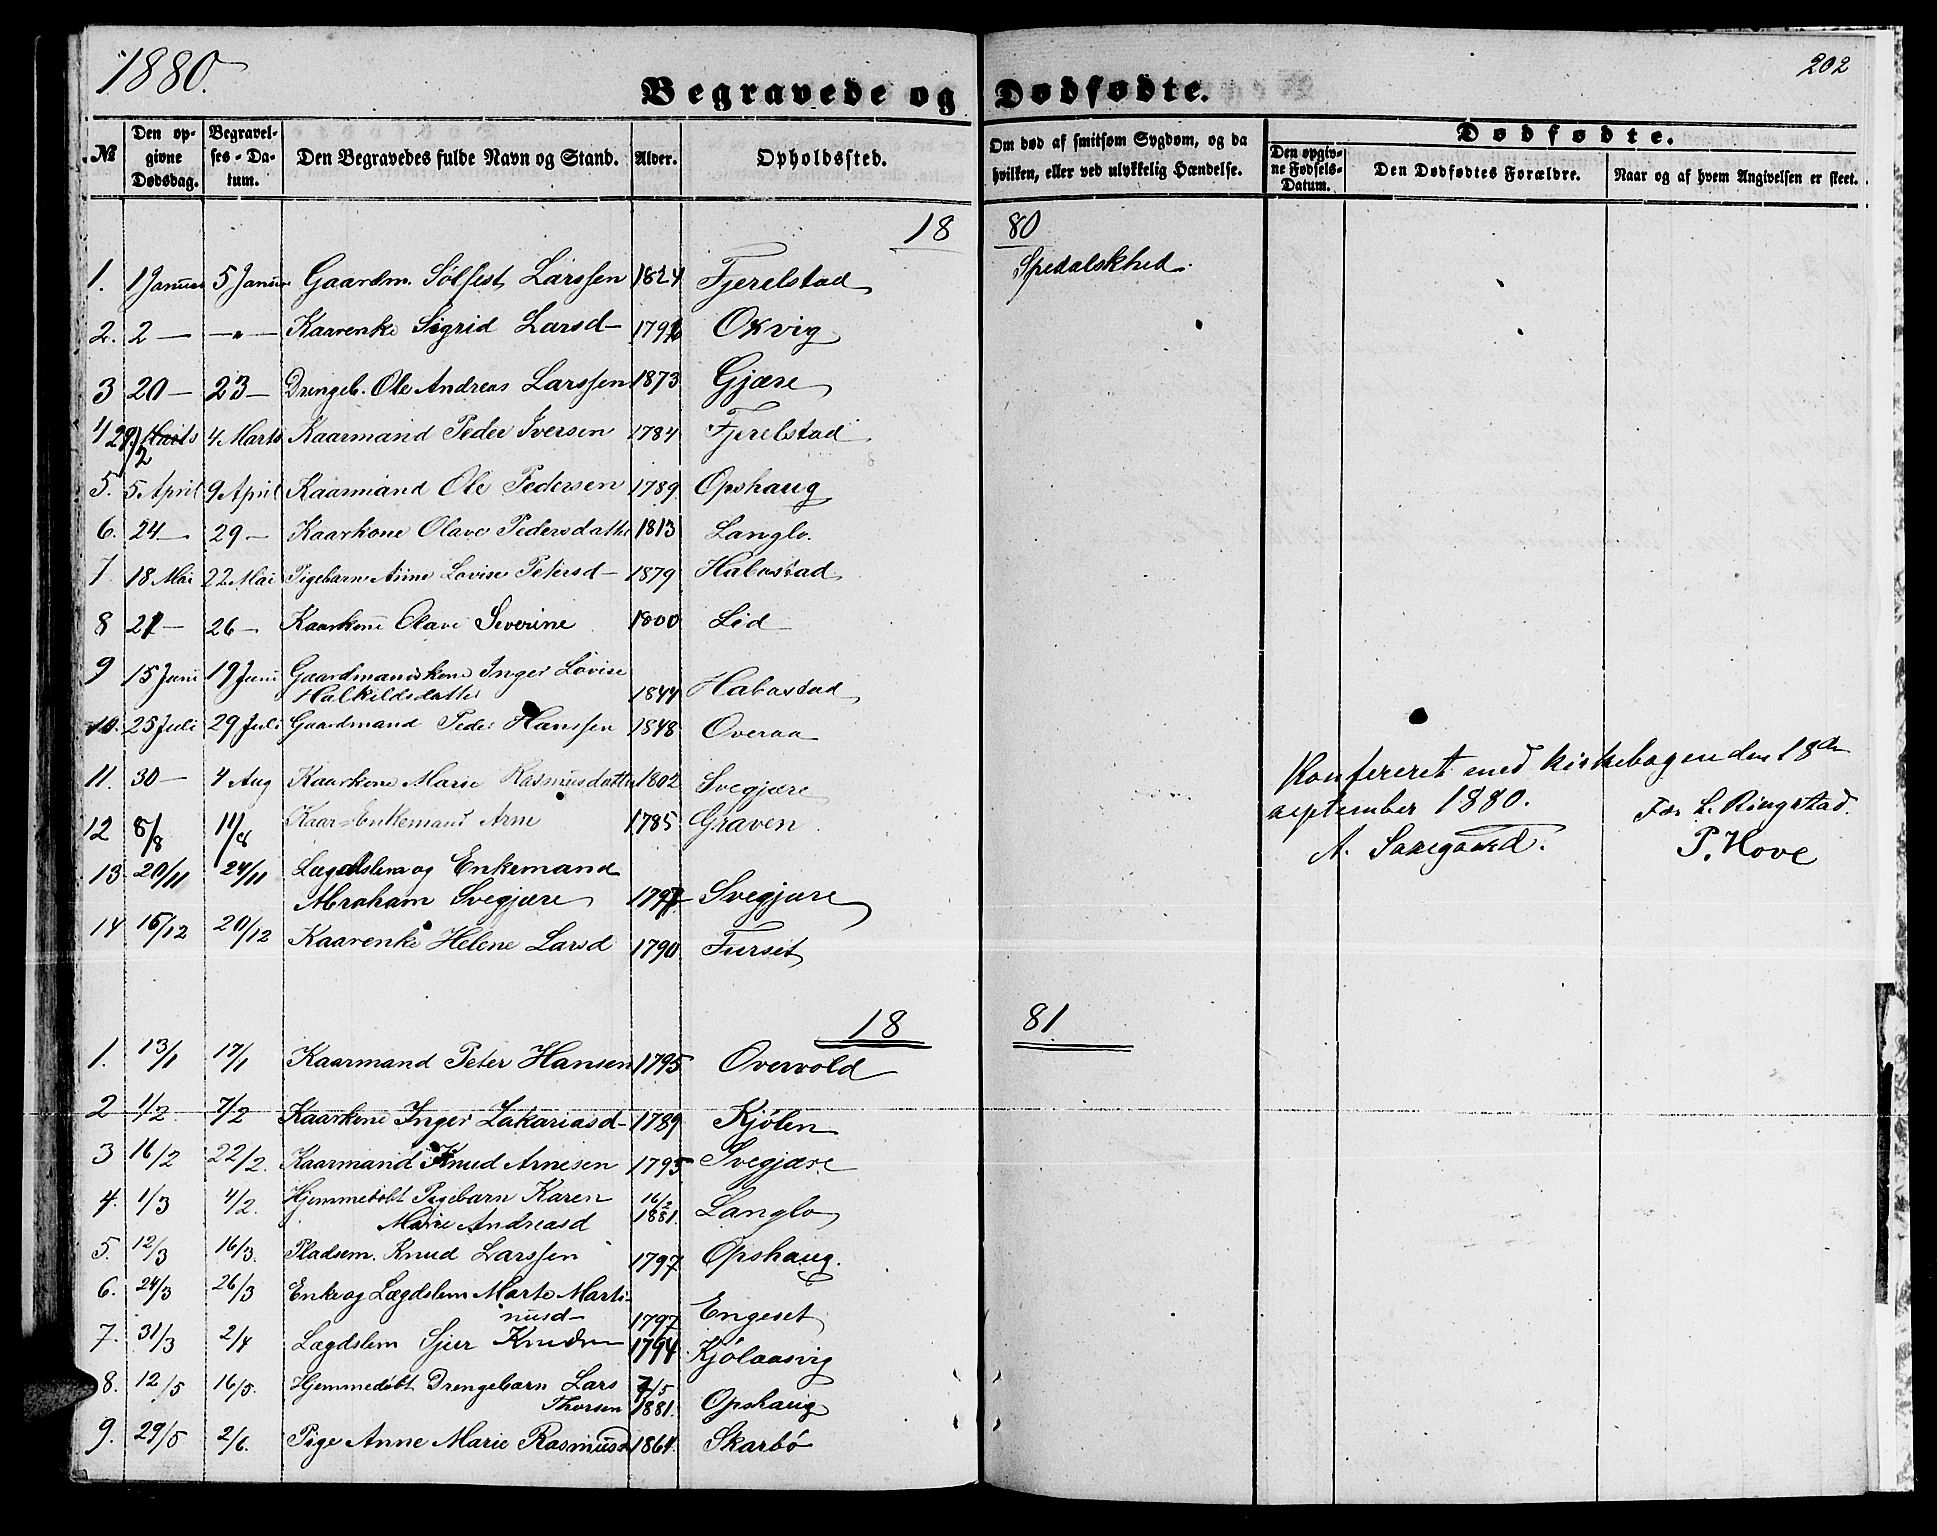 1880.
202
Begravede og Dødfødte.
№
Den opgivne Dødsdag.
Begravelses-Datum.
Den Begravedes fulde Navn og Stand.
Alder.
Opholdssted.
Om død af smitsom Sygdom, og da hvilken, eller ved ulykkelig Hændelse.
Dødfødte.
Den opgivne Fødsels-Datum.
Den Dødfødtes Forældre.
Naar og af hvem Angivelsen er skeet.
18 80
1. 1 Januar 5 Januar Gaardm. Sølfest Larssen 1824 Fjerelstad Spedalskhed.
2. 2 — —„— Kaarenke Sigrid Larsd— 1792 Oxvig
3 20 — 23 — Drengeb. Ole Andreas Larssen 1873 Gjære
4 29/2 Marts 4 Marts Kaarmand Peder Iversen 1784 Fjerelstad
5. 5 April 9 April Kaarmand Ole Pedersen 1789 Opshaug
6. 24 — 29 — Kaarkone Olave Pedersdatter 1813 Langlo.
7 18 Mai 22 Mai Pigebarn Anne Lovise Petersd— 1879 Habostad
8 21 — 26 — Kaarkone Olave Severine 1800 Lid
9 15 Juni 19 Juni Gaardmandskone Inger Lovise
Halkildsdatter 1844 Habostad
10. 25 Juli 29 Juli Gaardmand Peder Hanssen 1848 Overaa
11. 30 — 4 Aug Kaarkone Marie Rasmusdatter 1802 Svegjære
12 8/8 11/8 Kaar-Enkemand Arne 1785 Graven
13 20/11 24/11 Lægdslem og Enkemand
Abraham Svegjære 1797 Svegjære
14 16/12 20/12 Kaarenke Helene Larsd 1790 Furset
Konfereret med kirkebogen den 18de
september 1880. For L. Ringstad.
A. Saxegaard. P. Hove
18 81.
1. 13/1 17/1 Kaarmand Peter Hansen 1795 Overvold
2 1/2. 7/2 Kaarkone Inger Zakariasd— 1789 Kjølen
3 16/2 22/2. Kaarmand Knud Arnesen 1795 Svegjære
4. 1/3 4/2. Hjemmedøbt Pigebarn Karen
Marie Andreasd 16/2 1881. Langlo
5. 12/3 16/3. Pladsem. Knud Larssen 1797 Opshaug.
6. 24/3 26/3 Enke og Lægdslem Marte Marti-
nusd— 1797 Engeset
7. 31/3 2/4 Lægdslem Sjur Knudsen 1794 Kjølaasvig
8. 12/5 16/5. Hjemmedøbt Drengebarn Lars
Thorsen 7/5 1881. Opshaug
9. 29/5 2/6. Pige Anne Marie Rasmusd 1864. Skarbø